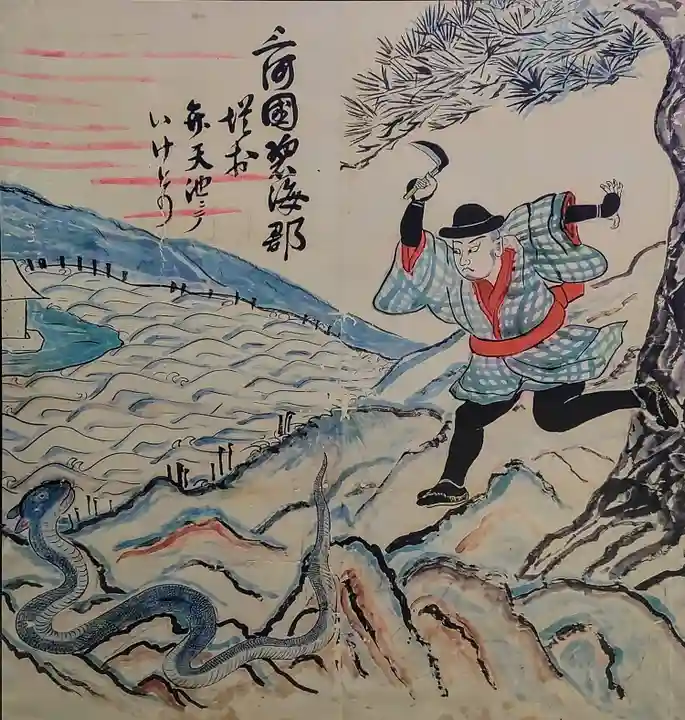 三河國碧海郡
堤村
弁天池ニテ
いけどりの